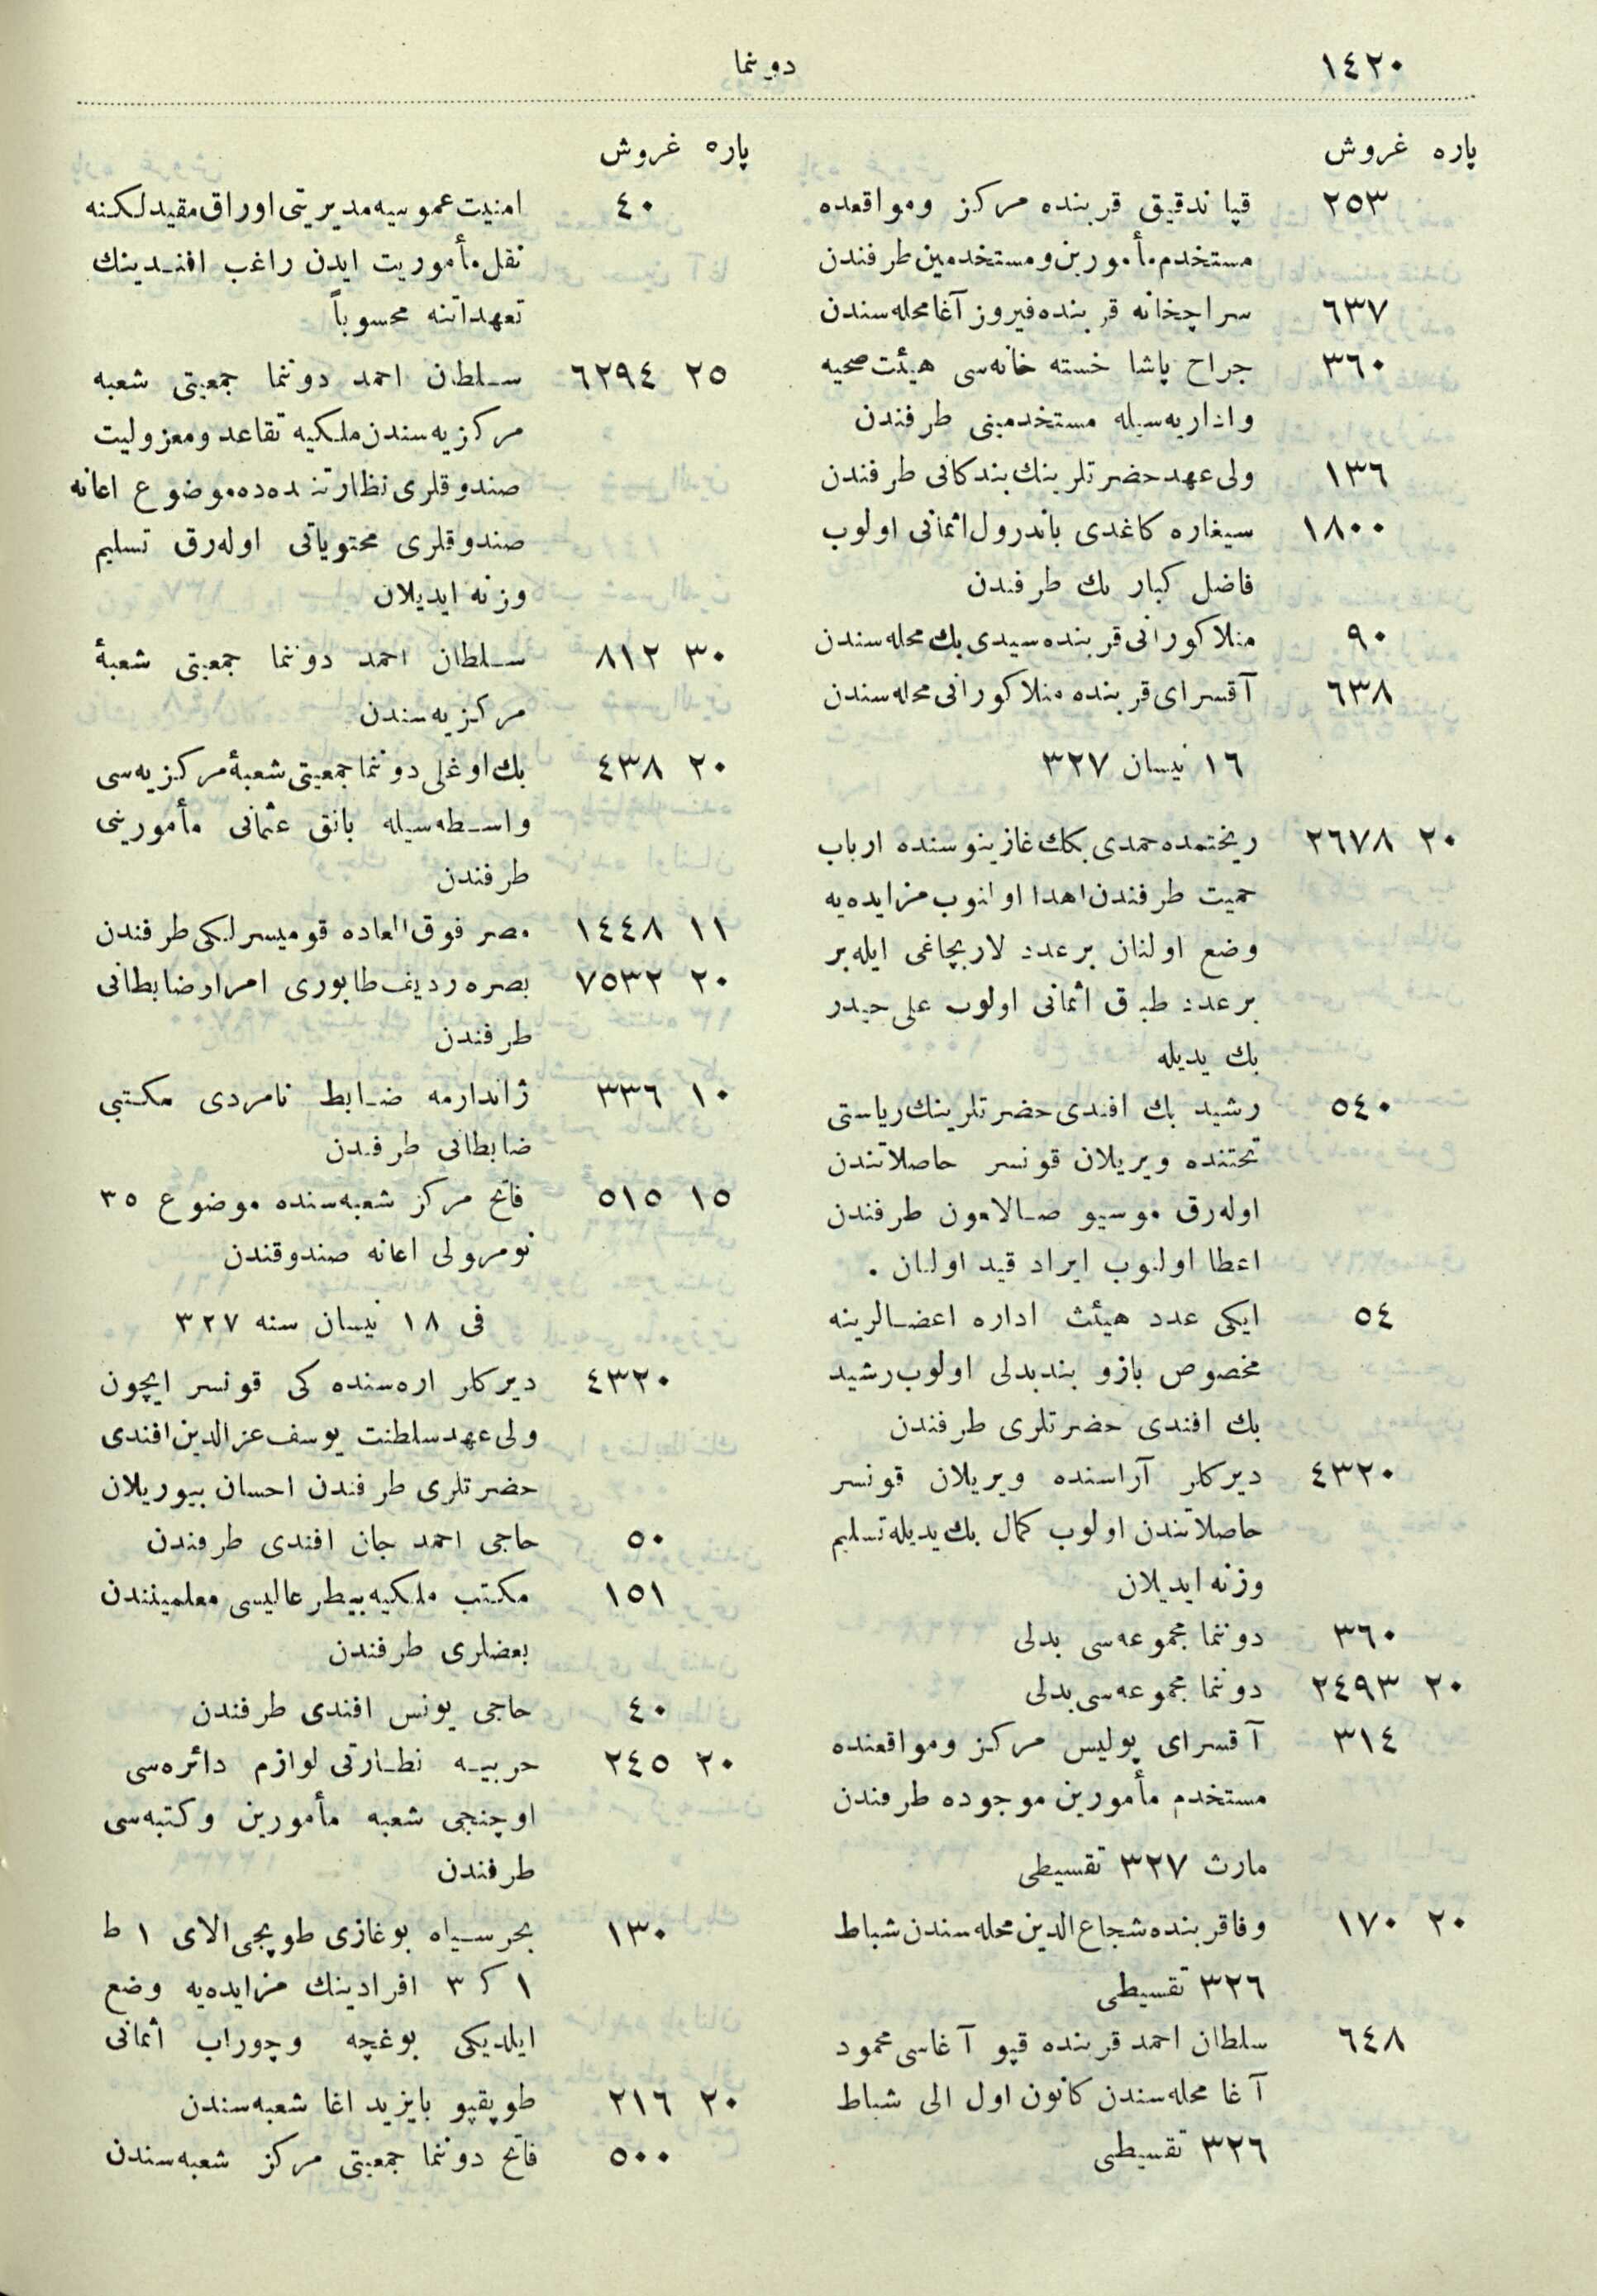 ١٤٢٠
دوننما
پاره غروش
٢٥٣ قپاندقیق قربنده مركز ومواقعده
مستخدم مأمورین ومستخدمین طرفندن
٦٣٧ سراچخانه قربنده فیروز آغا محله‌سندن
٣٦٠ جراح پاشا خسته خانه‌سی هیئت صحیه
واداریه‌سیله مستخدمینی طرفندن
١٣٦ ولی عهد حضرتلرینك بندكانی طرفندن
١٨٠٠ سیغاره كاغدی باندرول اثمانی اولوب
فاضل كبار بك طرفندن
٩٠ منلا كورانی قربنده سیدی بك محله‌سندن
٦٣٨ آقسرای قربنده منلا كورانی محله‌سندن
١٦ نیسان ٣٢٧
٢٠ ٢٦٧٨ ریختمده حمدی بكك غازینوسنده ارباب
حمیت طرفندن اهدا اولنوب مزایده‌یه
وضع اولنان بر عدد لار بچاغی ایله بر
بر عدد طبق اثمانی اولوب علی حیدر
بك یدیله
٥٤٠ رشید بك افندی حضرتلرینك ریاستی
تحتنده ویریلان قونسر حاصلاتندن
اوله‌رق موسیو صالامون طرفندن
اعطا اولنوب ایراد قید اولنان .
٥٤ ایكی عدد هیئت اداره اعضالرینه
مخصوص بازو بند بدلی اولوب رشید
بك افندی حضرتلری طرفندن
٤٣٢٠ دیركلر آراسنده ویریلان قونسر
حاصلاتندن اولوب كمال بك یدیله تسلیم
وزنه ایدیلان
٣٦٠ دوننما مجموعه‌سی بدلی
٢٠ ٢٤٩٣ دوننما مجموعه‌سی بدلی
٣١٤ آقسرای پولیس مركز ومواقعنده
مستخدم مأمورین موجوده طرفندن
مارث ٣٢٧ تقسیطی
٢٠ ١٧٠ وفا قربنده شجاع الدین محله‌سندن شباط
٣٢٦ تقسیطی
٦٤٨ سلطان احمد قربنده قپو آغاسی محمود
آغا محله‌سندن كانون اول الی شباط
٣٢٦ تقسیطی
پاره غروش
٤٠ امنیت عمومیه مدیریتی اوراق مقیدلكنه
نقل مأموریت ایدن راغب افندینك
تعهداتنه محسوباً
٢٥ ٦٢٩٤ سلطان احمد دوننما جمعیتی شعبه
مركزیه‌سندن ملكیه تقاعد ومعزولیت
صندوقلری نظارتنده‌ده موضوع اعانه
صندوقلری محتویاتی اوله‌رق تسلیم
وزنه ایدیلان
٣٠ ٨١٢ سلطان احمد دوننما جمعیتی شعبهٔ
مركزیه‌سندن
٢٠ ٤٣٨ بك اوغلی دوننما جمعیتی شعبهٔ مركزیه‌سی
واسطه‌سیله بانق عثمانی مأمورینی
طرفندن
١١ ١٤٤٨ مصر فوق العاده قومیسرلكی طرفندن
٢٠ ٧٥٣٢ بصره ردیف طابوری امرا وضابطانی
طرفندن
١٠ ٣٣٦ ژاندارمه ضابط نامزدی مكتبی
ضابطانی طرفندن
١٥ ٥١٥ فاتح مركز شعبه‌سنده موضوع ٣٥
نومرولی اعانه صندوقندن
فی ١٨ نیسان سنه ٣٢٧
٤٣٢٠ دیركلر اره‌سنده كی قونسر ایچون
ولی عهد سلطنت یوسف عزالدین افندی
حضرتلری طرفندن احسان بیوریلان
٥٠ حاجی احمد جان افندی طرفندن
١٥١ مكتب ملكیه بیطر عالیسی معلمیندن
بعضلری طرفندن
٤٠ حاجی یونس افندی طرفندن
٢٠ ٢٤٥ حربیه نظارتی لوازم دائره‌سی
اوچنجی شعبه مأمورین وكتبه‌سی
طرفندن
١٣٠ بحر سیاه بوغازی طوپجی الای ١ ط
١ ك ٣ افرادینك مزایده‌یه وضع
ایلدیكی بوغچه وچوراب اثمانی
٢٠ ٢١٦ طوپقپو بایزید اغا شعبه‌سندن
٥٠٠ فاتح دوننما جمعیتی مركز شعبه‌سندن